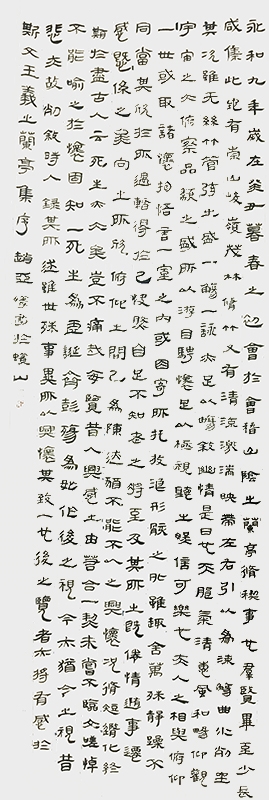 永和九年歲在癸丑暮春之初會於會稽山陰之蘭亭脩禊事也群賢畢至少長
咸集此地有崇山峻嶺茂林脩竹又有清流激湍映帶左右引以為流觴曲水列坐
其次雖无絲竹管弦之盛一觴一詠亦足以暢敘幽情是日也天朗氣清惠風和暢仰觀
宇宙之大俯察品類之盛所以遊目騁懷足以極視聽之娛信可樂也夫人之相與俯仰
一世或取諸懷抱悟言一室之內或因寄所托放浪形骸之外雖趣舍萬殊靜躁不
同當其欣於所遇暫得於己快然自足不知老之將至及其所之既倦情隨事遷
感慨係之矣向之所欣俯仰之間已為陳迹猶不能不以之興懷況脩短隨化終
期於盡古人云死生亦大矣豈不痛哉每覽昔人興感之由若合一契未嘗不臨文嗟悼
不能喻之於懷固知一死生為虛誕齊彭殤為妄作後之視今亦猶今之視昔
悲夫故列敘時人錄其所述雖世殊事異所以興懷其致一也後之覽者亦將有感於
斯文王羲之蘭亭集序 趙亞 書於 山